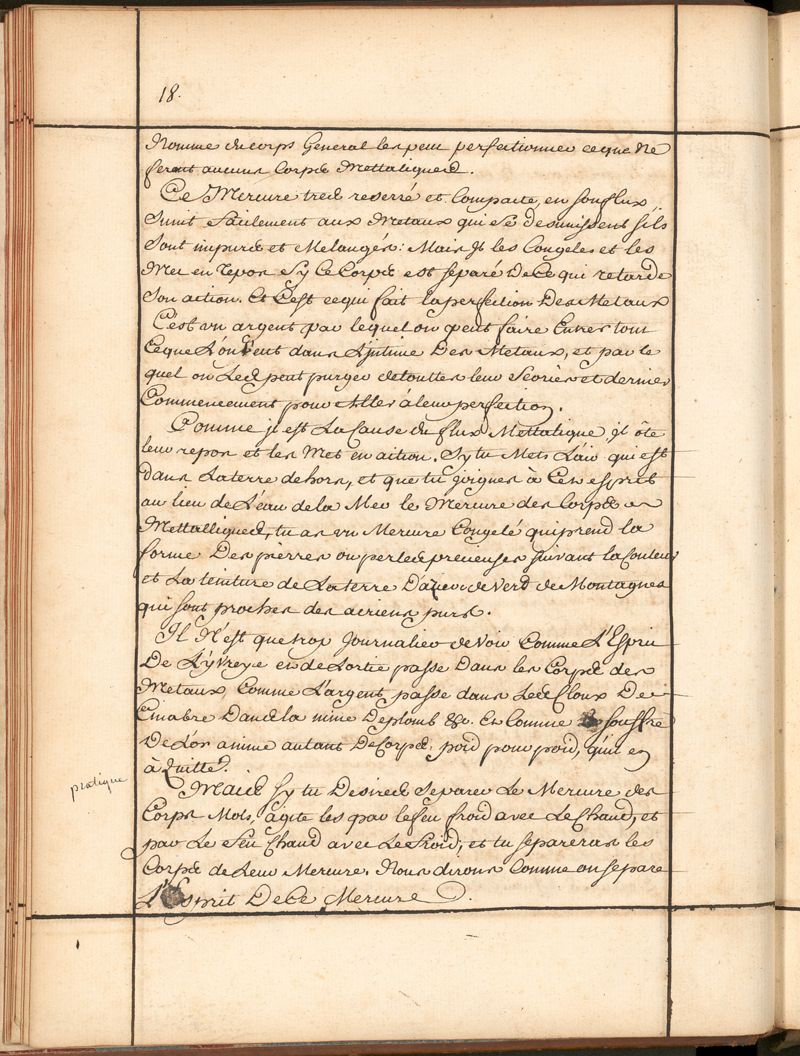 18.
Nomme du corps General les peut perfectionner ceque Ne
ferait aucuns Corps Mettaliques.
Ce Mercure tres reserré et Compacte, en son flux
s'unit facilement aux Metaux qui se desunissent sils
sont impures et Melangés: Mais Jl les Congeles et les
Met en repos sy Ce Corps est separé De Ce qui retarde
son action. Et C'est cequi fait la perfection Des Metaux
C'est vn argent par lequel on peut faire Entrer tout
Ceque L'on Veut dans L'jntime Des Metaux, et par le
quel on Les peut purger de touttes leur Scories et dernier
Commencement pour Aller à leur perfection.
Comme jl est La Cause du flux Mettalique, Jl ôte
leur repos et les Met en action. Sy tu Mets L'air qui est
dans La terre dehors, et que tu joignes à Ces esprits
au lieu de L'eau de la Mer le Mercure des Corps
Mettalliques, tu as vn Mercure Congelé qui prend la
forme Des pierres ou perles precieuses suivant la Couleur
et La teinture de La terre D'azur de Verd de Montagnes
qui sont proches des aeriens purs.
Il N'est que trop Journalier de Voir Comme L'Esprit
De L'yvroye et de Lortie passe Dans les Corps des
Metaux Comme L'argent passe dans Les Cloux De
Cinabre Dans la mine De plomb &c. Et Comme souffre
De L'or anime autant De Corps, poid pour poid, qu'il en
à quitté.
pratique
Mais sy tu Desires Separer Le Mercure des
Corps Mots, agite les par le feu froid avec Le Chaud, et
par Le feu Chaud avec Le froid, et tu separeras les
Corps de Leur Mercure. Nous dirons Comme on separe
L'Esprit De Ce Mercure.